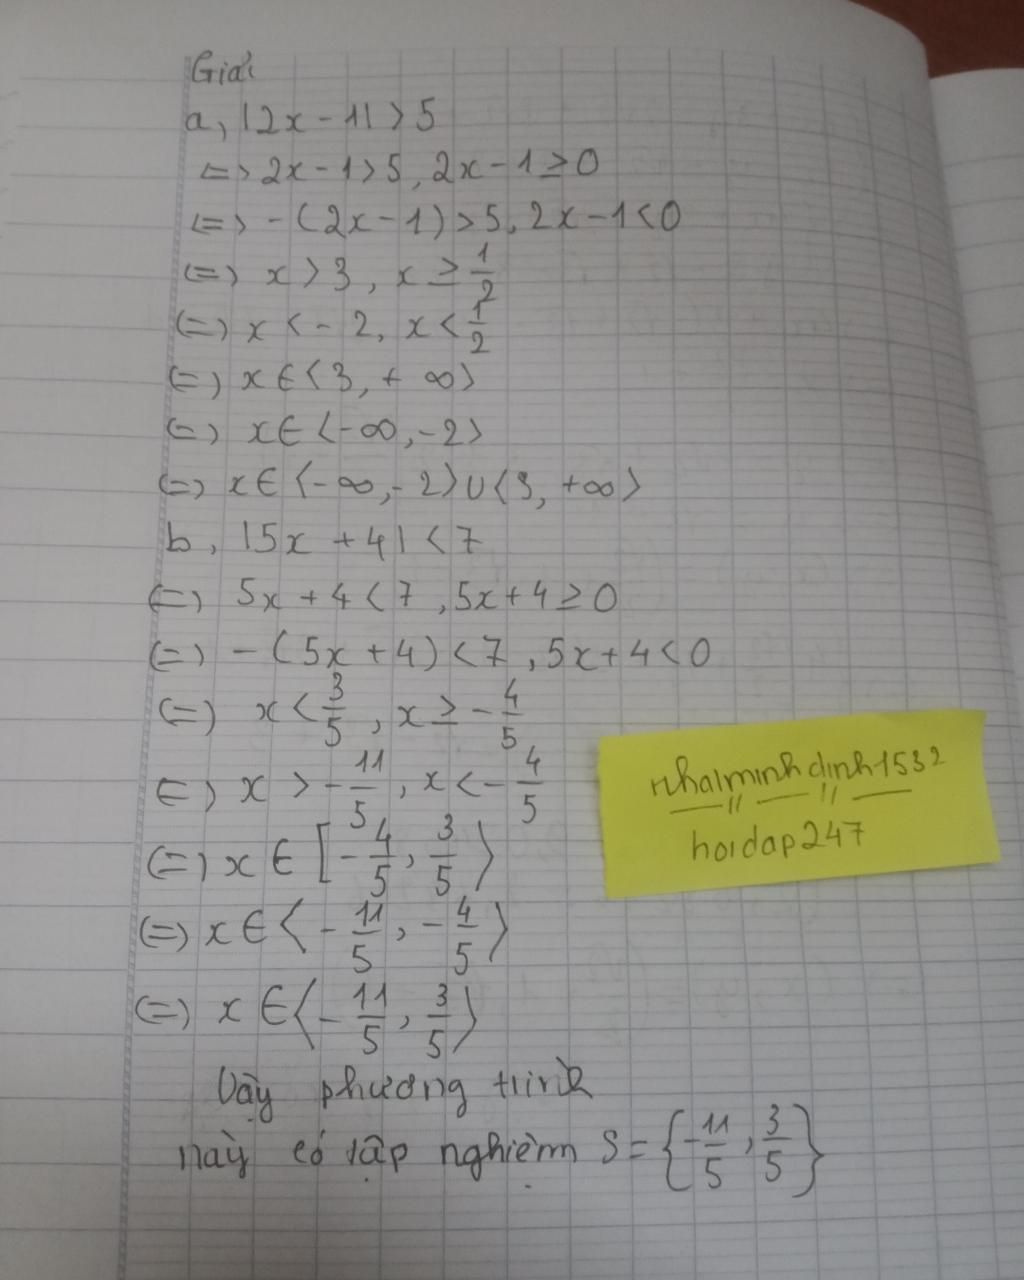 Giải
a, |2x - 1| > 5
<=> 2x - 1 > 5, 2x - 1 ≥ 0
<=> -(2x - 1) > 5, 2x - 1 < 0
<=> x > 3, x ≥ 1/2
<=> x < - 2, x < 1/2
<=> x ∈ <3, + ∞>
<=> x ∈ <-∞, -2>
<=> x ∈ <-∞, -2> ∪ <3, +∞>
b, |5x + 4| < 7
<=> 5x + 4 < 7, 5x + 4 ≥ 0
<=> -(5x + 4) < 7, 5x + 4 < 0
<=> x < 3/5, x ≥ -4/5
<=> x > -11/5, x < -4/5
<=> x ∈ [-4/5, 3/5>
<=> x ∈ <-11/5, -4/5>
<=> x ∈ <-11/5, 3/5>
Vậy phương trình
này có tập nghiệm S = {-11/5, 3/5}
nhaiminhdinh1532
hoidap247